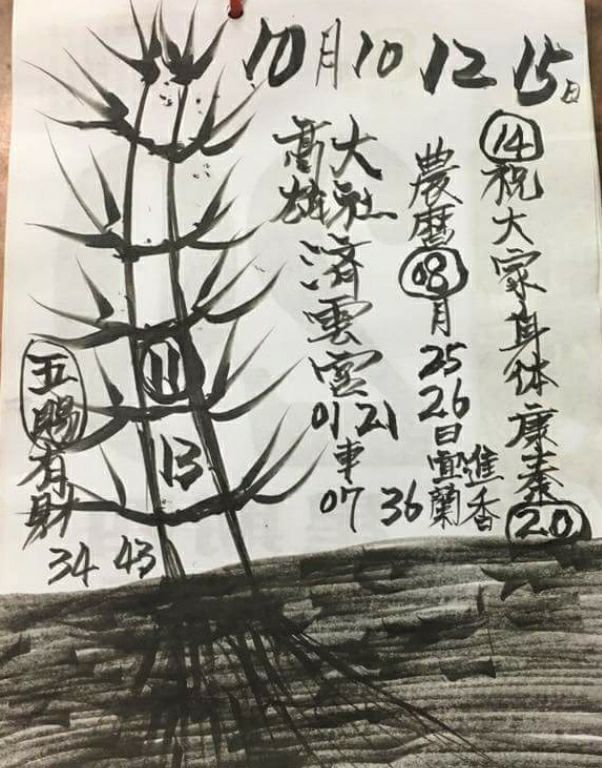 10月10 12 15日
14祝大家身体康泰20
農曆08月25 26日宜蘭進香
大社
高雄
済雲宮
01 21
車
07 36
11
13
五賜有財
34 43